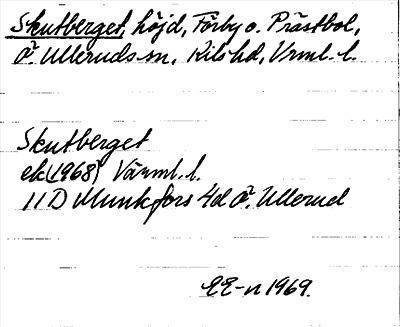 Skutberget, höjd, Förby o. Prästbol,
Ö. Ulleruds sn, Kils hd, Vrml. l.
Skutberget
ek(1968) Värml. l.
11D Munkfors 4d Ö. Ullerud
EE-n 1969.